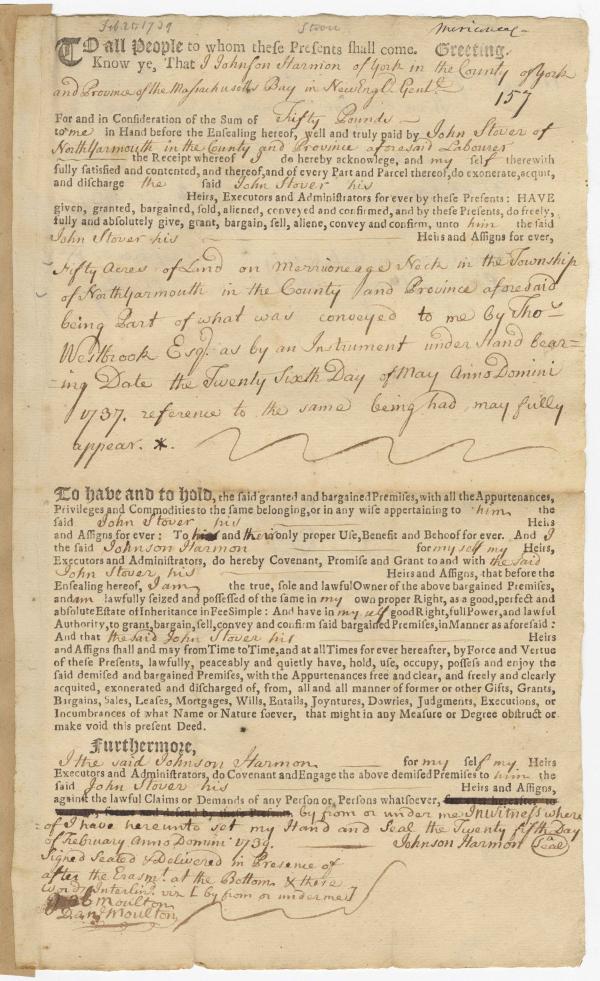 Feb 25 1739 Stover Mericoneag
TO all People to whom these Presents shall come. Greeting.
Know ye, That I Johnson Harmon of York in the County of York
and Province of the Massachusetts Bay in New Engld. Gentl.
157
For and in Consideration of the Sum of Fifty Pounds
to me in Hand before the Ensealing hereof, well and truly paid by John Stover of
North Yarmouth in the County and Province aforesaid Labourer
the Receipt whereof I do hereby acknowlege, and my self therewith
fully satisfied and contented, and thereof, and of every Part and Parcel thereof, do exonerate, acquit,
and discharge the said John Stover his
Heirs, Executors and Administrators for ever by these Presents: HAVE
given, granted, bargained, sold, aliened, conveyed and confirmed, and by these Presents, do freely,
fully and absolutely give, grant, bargain, sell, aliene, convey and confirm, unto him the said
John Stover his Heirs and Assigns for ever,
Fifty Acres of Land on Merrioneage Neck in the Township
of North Yarmouth in the County and Province aforesaid
being Part of what was conveyed to me by Thos
Westbrook Esqr. as by an Instrument under Hand bear=
=ing Date the Twenty Sixth Day of May Anno Domini
1737. reference to the same being had may fully
appear. *.
To have and to hold, the said granted and bargained Premises, with all the Appurtenances,
Privileges and Commodities to the same belonging, or in any wise appertaining to him the
said John Stover his Heirs
and Assigns for ever: To his and their only proper Use, Benefit and Behoof for ever. And I
the said Johnson Harmon for my self my Heirs,
Executors and Administrators, do hereby Covenant, Promise and Grant to and with the said
John Stover his Heirs and Assigns, that before the
Ensealing hereof, I am the true, sole and lawful Owner of the above bargained Premises,
and am lawfully seized and possessed of the same in my own proper Right, as a good, perfect and
absolute Estate of Inheritance in Fee Simple: And have in my self good Right, full Power, and lawful
Authority, to grant, bargain, sell, convey and confirm said bargained Premises, in Manner as aforesaid:
And that the said John Stover his Heirs
and Assigns shall and may from Time to Time, and at all Times for ever hereafter, by Force and Vertue
of these Presents, lawfully, peaceably and quietly have, hold, use, occupy, possess and enjoy the
said demised and bargained Premises, with the Appurtenances free and clear, and freely and clearly
acquited, exonerated and discharged of, from, all and all manner of former or other Gifts, Grants,
Bargains, Sales, Leases, Mortgages, Wills, Entails, Joyntures, Dowries, Judgments, Executions, or
Incumbrances of what Name or Nature soever, that might in any Measure or Degree obstruct or
make void this present Deed.
Furthermore,
I the said Johnson Harmon for my self my Heirs
Executors and Administrators, do Covenant and Engage the above demised Premises to him the
said John Stover his Heirs and Assigns,
against the lawful Claims or Demands of any Person or Persons whatsoever,
by from or under me In witness where
=of I have hereunto set my Hand and Seal the Twenty fifth Day
of February Anno Domini 1739. Johnson Harmon (a Seal)
Signed Sealed & Delivered in Presence of
after the Erasmt. at the Bottom & these
words Interlind. viz [ by from or under me ]
Moulton
Danl. Moulton